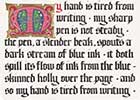 My hand is tired from
writing · my sharp
pen is not steady ·
the pen, a slender beak, spouts a
dark stream of blue ink · it doth
spill its flow of ink from the blue-
skinned holly over the page · and
so my hand is tired from writing